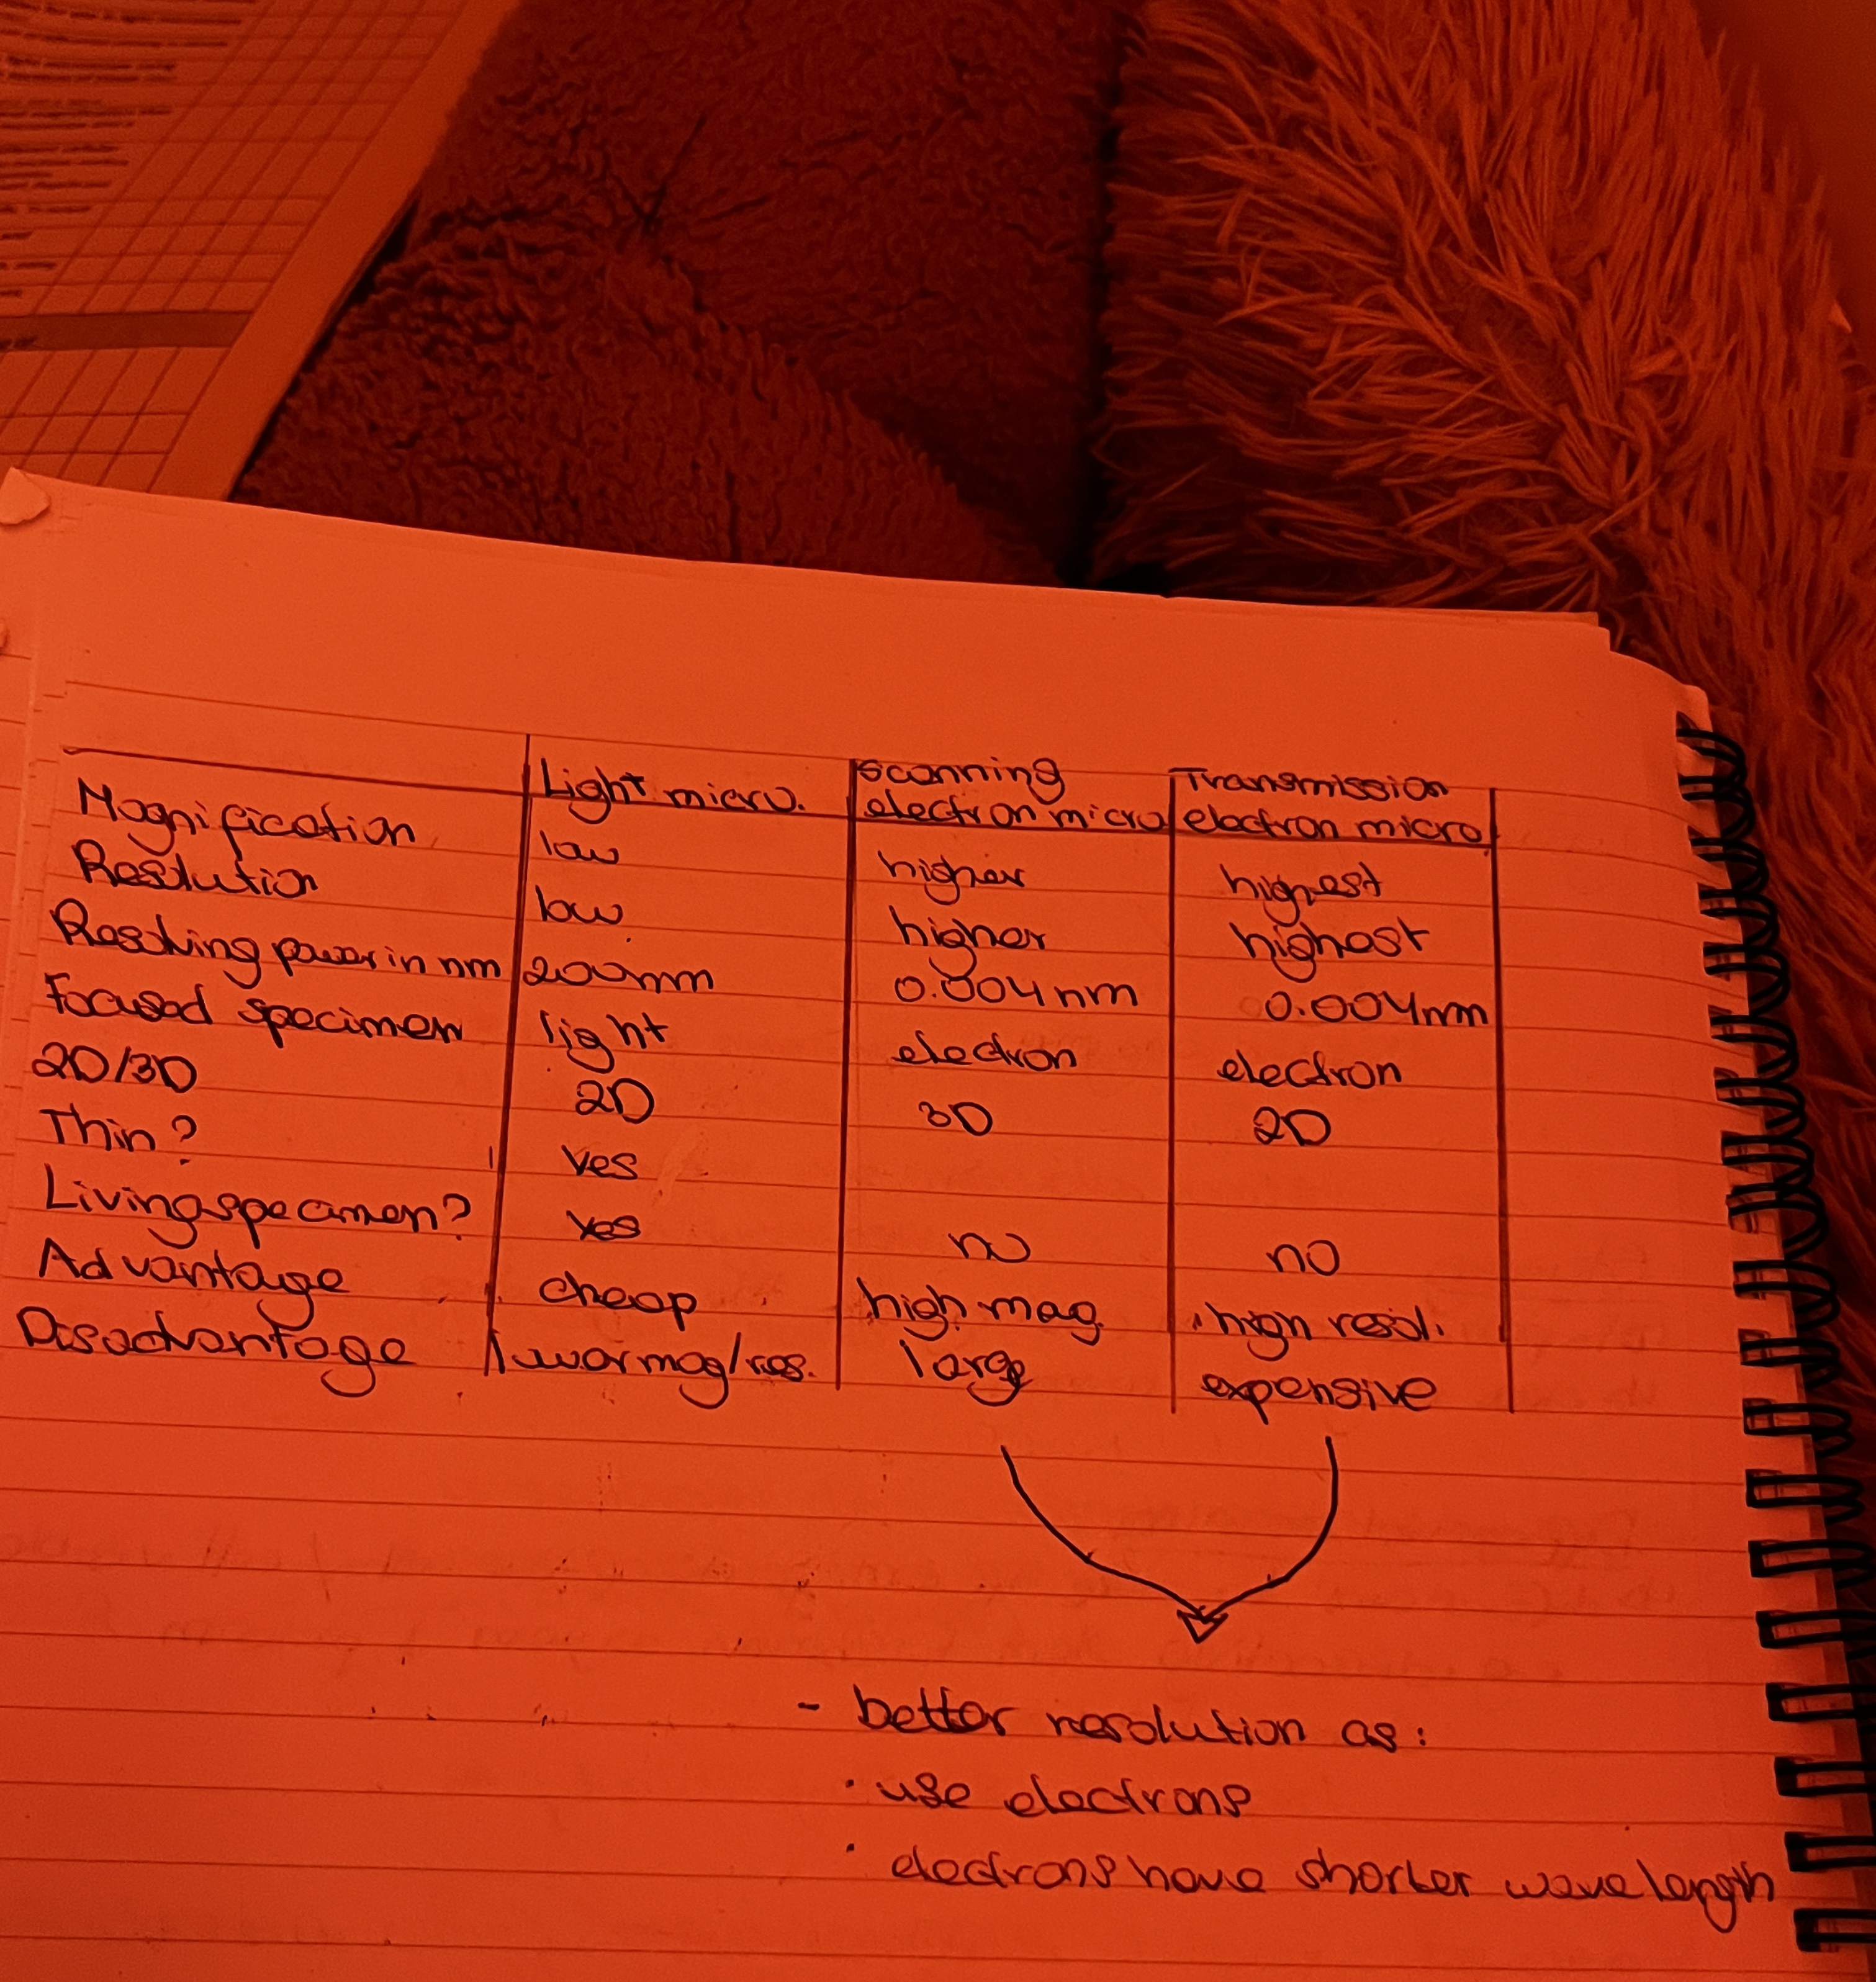 Light micro. scanning Transmission
electron micro electron micro
Magnification low higher highest
Resolution low higher highest
Resolving power in nm 200nm 0.004nm 0.004nm
Focused specimen light electron electron
2D/3D 2D 3D 2D
Thin? yes
Living specimen? yes no no
Advantage cheap high mag. high resol.
Disadvantage lower mag/res. large expensive
- better resolution as:
· use electrons
· electrons have shorter wavelength